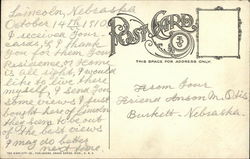 Lincoln, Nebraska
October 14th 1910
I receiver Your
cards, & I Thank
You for them Your
Residence, or Home
is all right, I would
like to live there
myself, I send You
some views I just
bought here of Lincoln
they seem to be out
of the best views
I may do better
next time.
POST CARD
THIS SPACE FOR ADDRESS ONLY.
From Your
Friend Anson M. Otis
Burkett - Nebraska